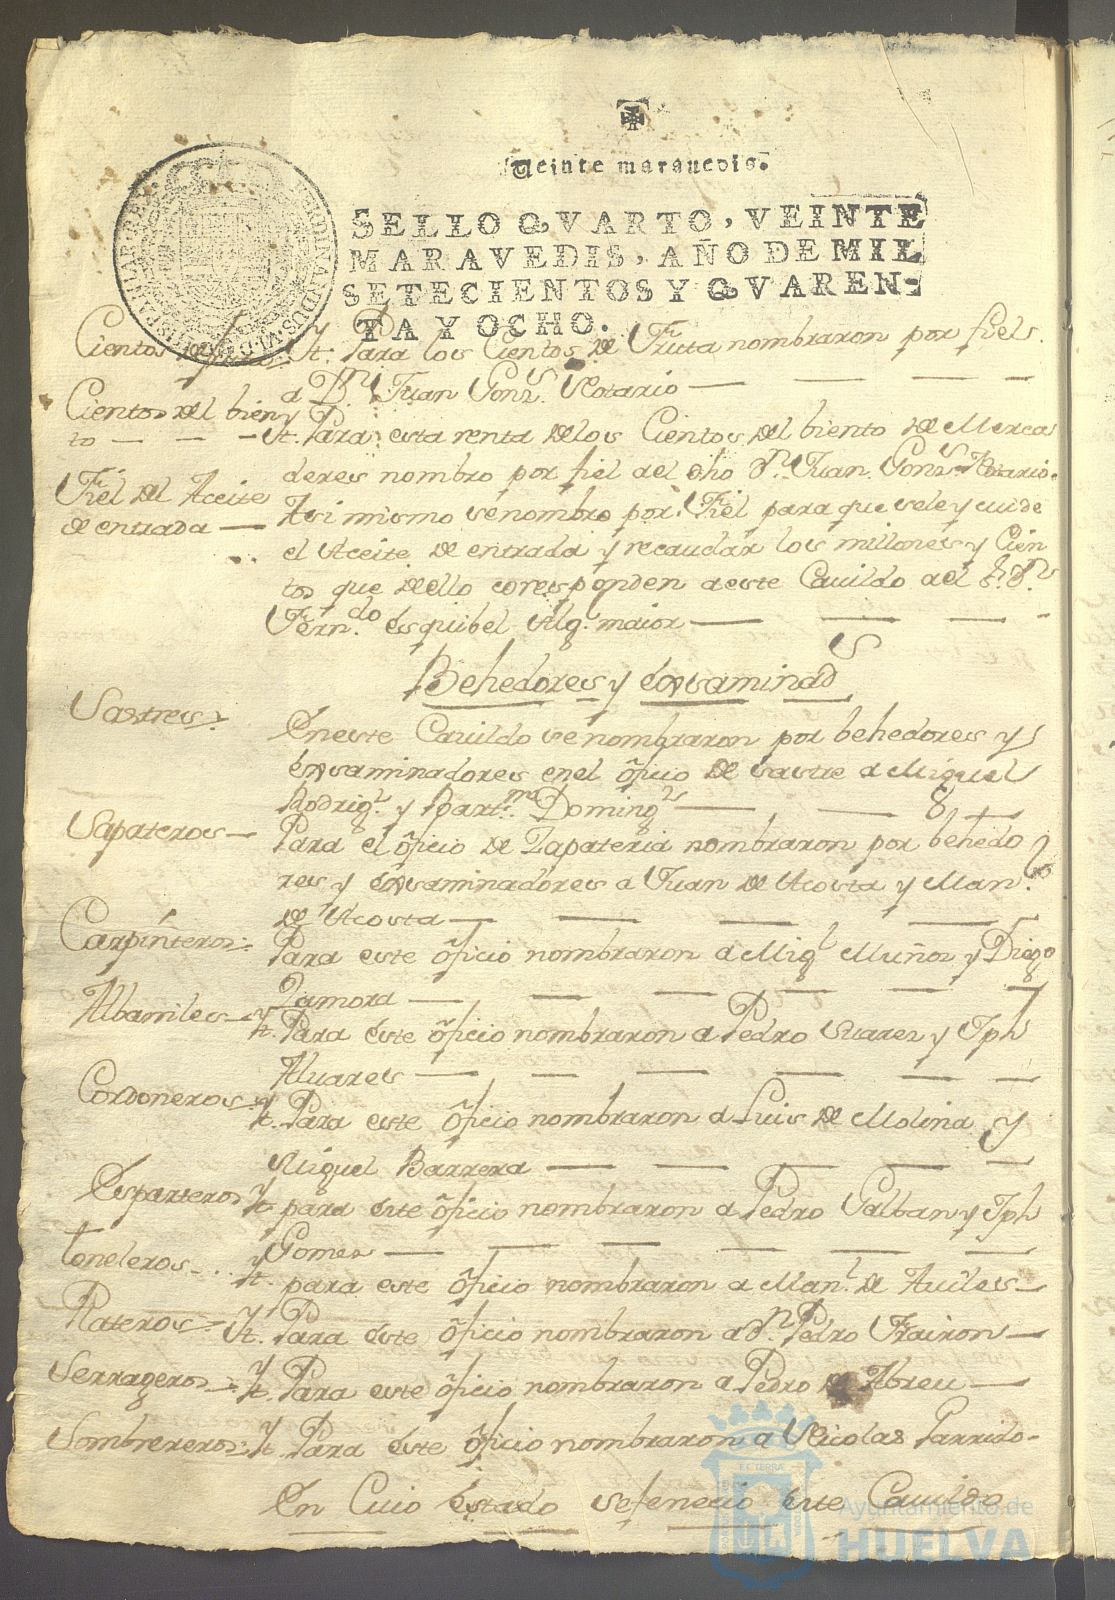 Veinte maravedis.
SELLO QVARTO, VEINTE
MARAVEDIS, AÑO DE MIL
SETECIENTOS Y QVAREN-
TA Y OCHO.
FERDINANDUS.VI.D.G. HISPANIAR.REX.
Cientos
Yt. Para los Cientos de Frutta nombraron por fiels.
a Dn. Juan Gonz.s Notario —
Cientos del bien
to — — —
Yt. Para esta renta de los Cientos del biento de Merca
deres nombro por fiel del dho Dn. Juan Gonz.s Notario.
Fiel del Aceite
de entrada —
Asi mismo se nombro por Fiel para que sele y cuide
el Aceite de entrada y recaudar los millones y Cien
tos que dello coresponden a este Cauildo del
Fern.do Esquibel Alg. maior —
Behedores y Exsaminad.s
Sastres
En este Cauildo se nombraron por behedores y
Exsaminadores en el oficio de sastre a Miguel
Rodrig.z y Bart.me Doming.z —
Sapateros —
Para el oficio de Zapateria nombraron por behedo
res y exsaminadores a Juan de Acosta y Man.
de Acosta —
Carpinteros
Para este oficio nombraron a Mig.l Muños y Diego
Zamora —
Albamiles —
Yt. Para este oficio nombraron a Pedro Suarez y Jph
Aluares —
Cordoneros
Yt. Para este oficio nombraron a Luis de Molina y
Miguel Barrera —
Esparteros
Yt. para este oficio nombraron a Pedro Galban y Jph
Gomez —
toneleros
Yt. para este oficio nombraron a Man.l de Auiles —
Plateros
Yt. Para este oficio nombraron a Dn. Pedro Frairon —
Serrageros
Yt. Para este oficio nombraron a Pedro de Abreu —
Sombrereros
Yt. Para este oficio nombraron a Nicolas Parrido-
En Cuio Estado se fenecio este Cauildo
Ayuntamiento de
HUELVA